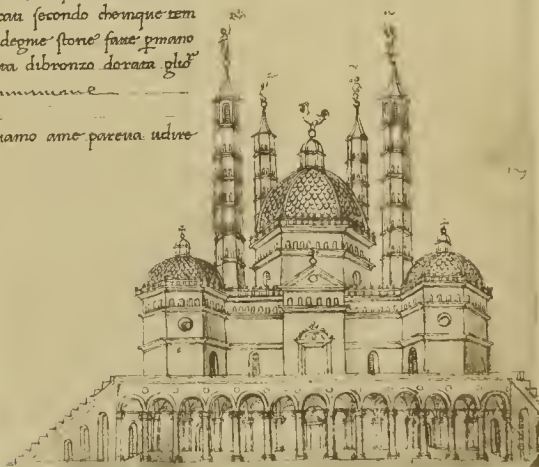 cati secondo cheinque tem
degne storie fatte ꝑmano
ta dibronzo dorata
iamo ame pareua udire